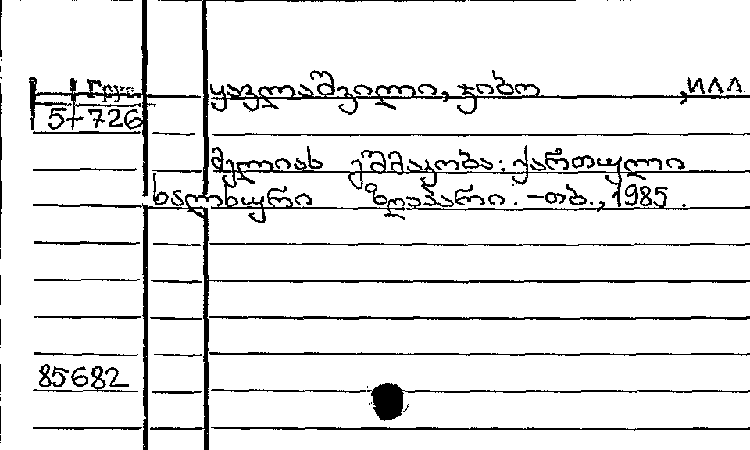 Груз
5-726
ყავლაშვილი, ჯიბო ,ИЛЛ
მელიას ეშმაკობა: ქართული
ხალხური ზღაპარი. -თბ., 1985.
85682